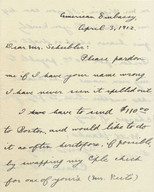 American Embassy
April 3, 1912.
Dear Mr. Scheibler:
Please pardon
me if I have your name wrong
I have never seen it spelled out
I am have to send $110.00
to Boston, and would like to do
it as often heretofore, if possible,
by swapping my check
for one of yours (Mr.